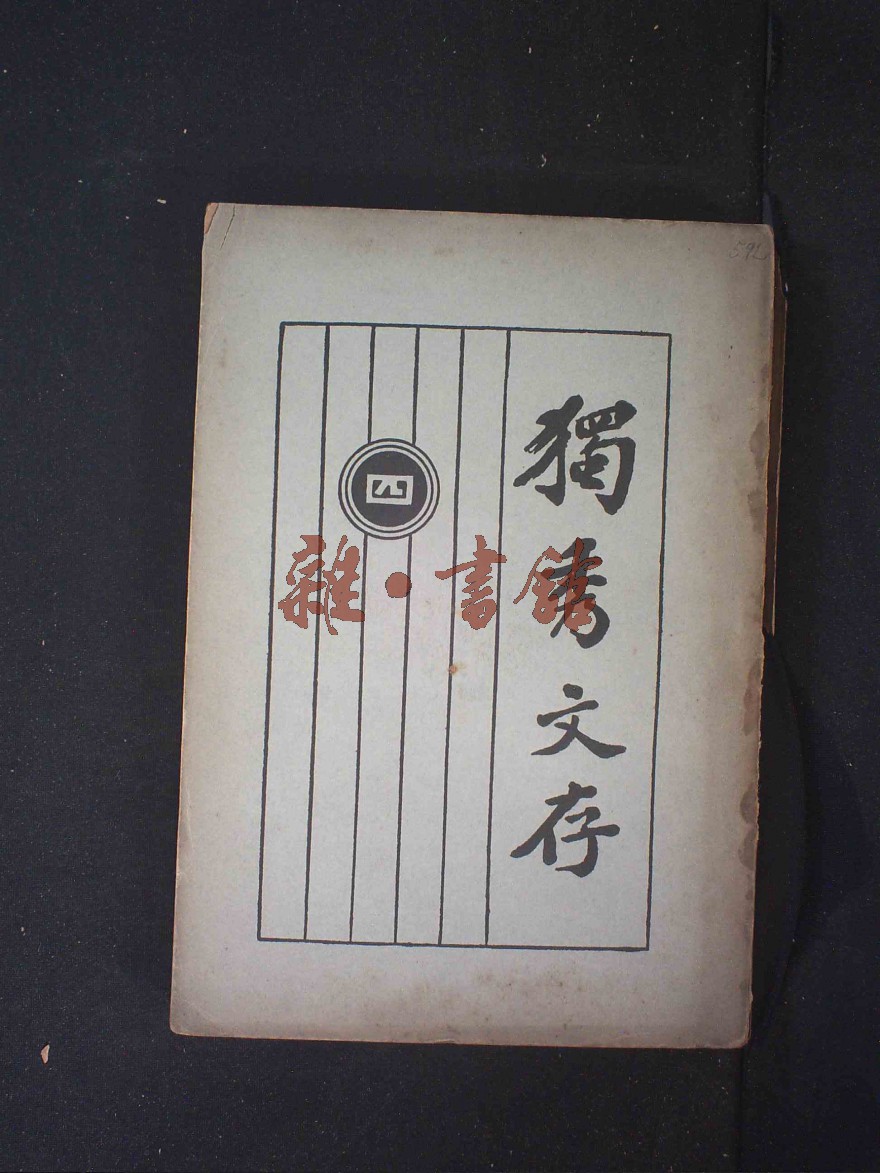 獨秀文存
四
雜·書館
592